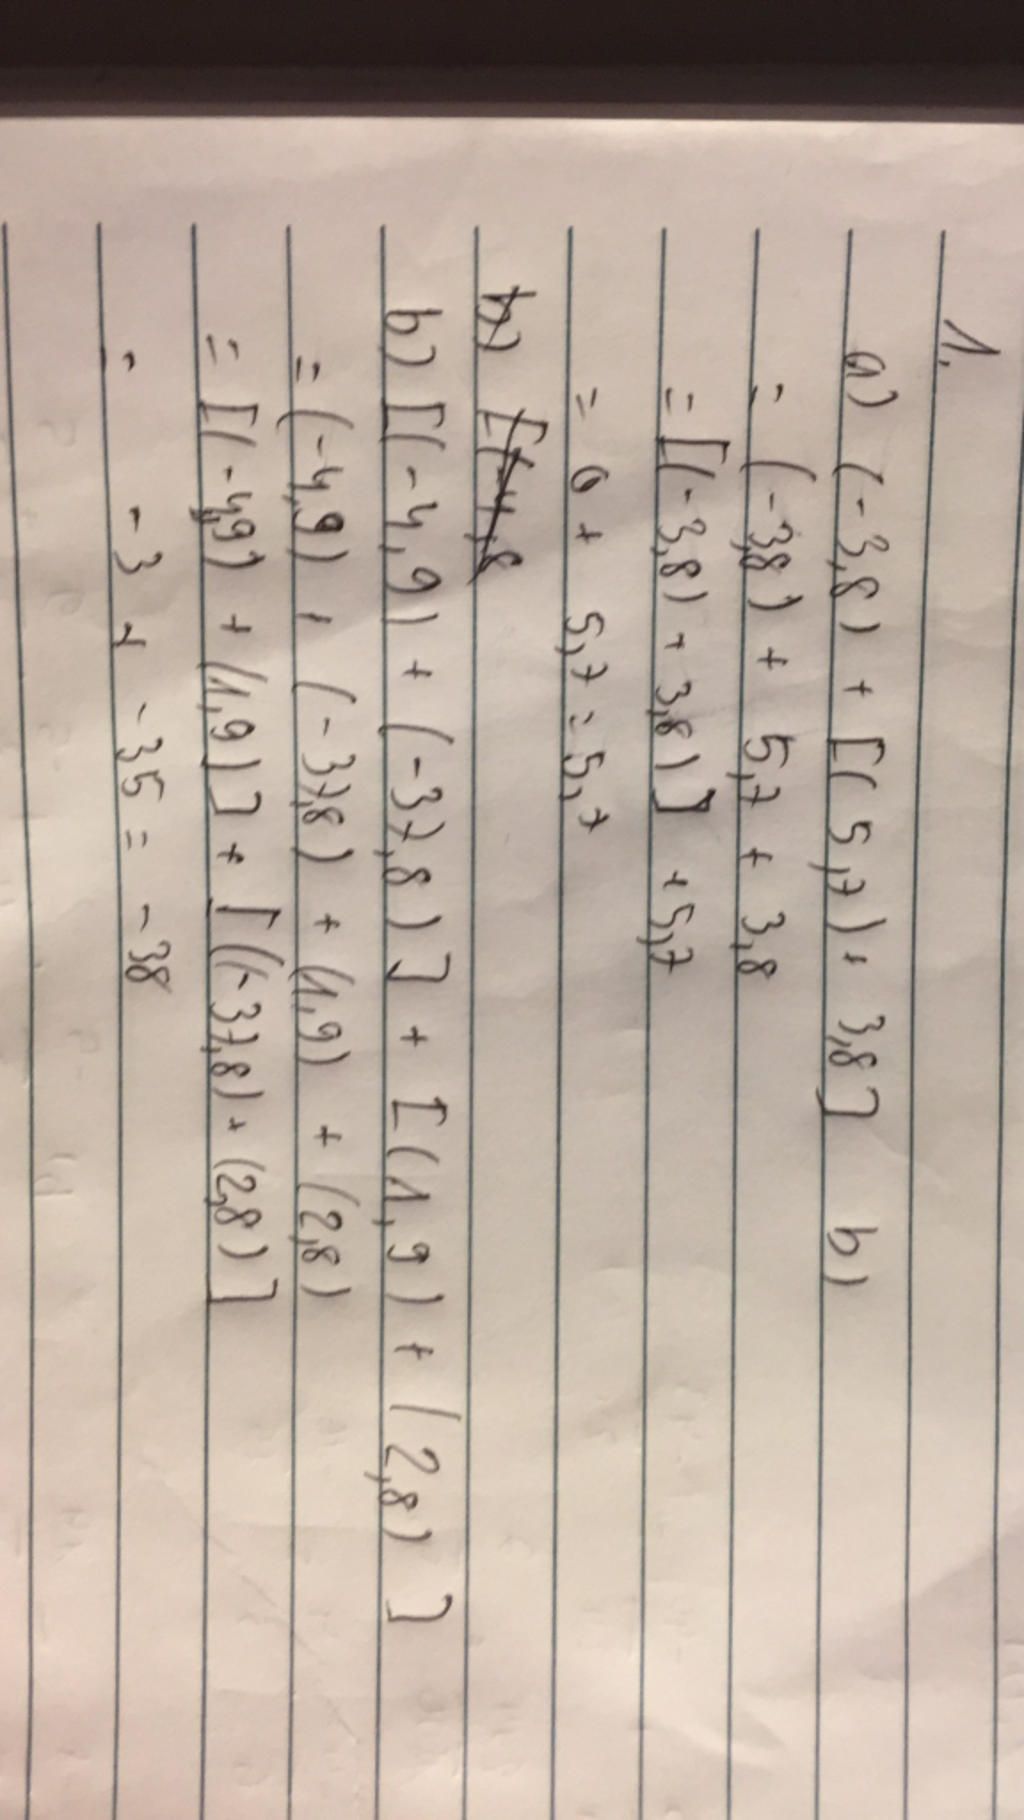 1.
a) (-3,8) + [(5,7) + 3,8] b)
= (-3,8) + 5,7 + 3,8
= [(-3,8) + 3,8)] + 5,7
= 0 + 5,7 = 5,7
b) [(-4,8
b) [(-4,9) + (-37,8)] + [(1,9) + (2,8)]
= (-4,9) + (-37,8) + (1,9) + (2,8)
= [(-4,9) + (1,9)] + [((-37,8) + (2,8)]
= -3 + -35 = -38